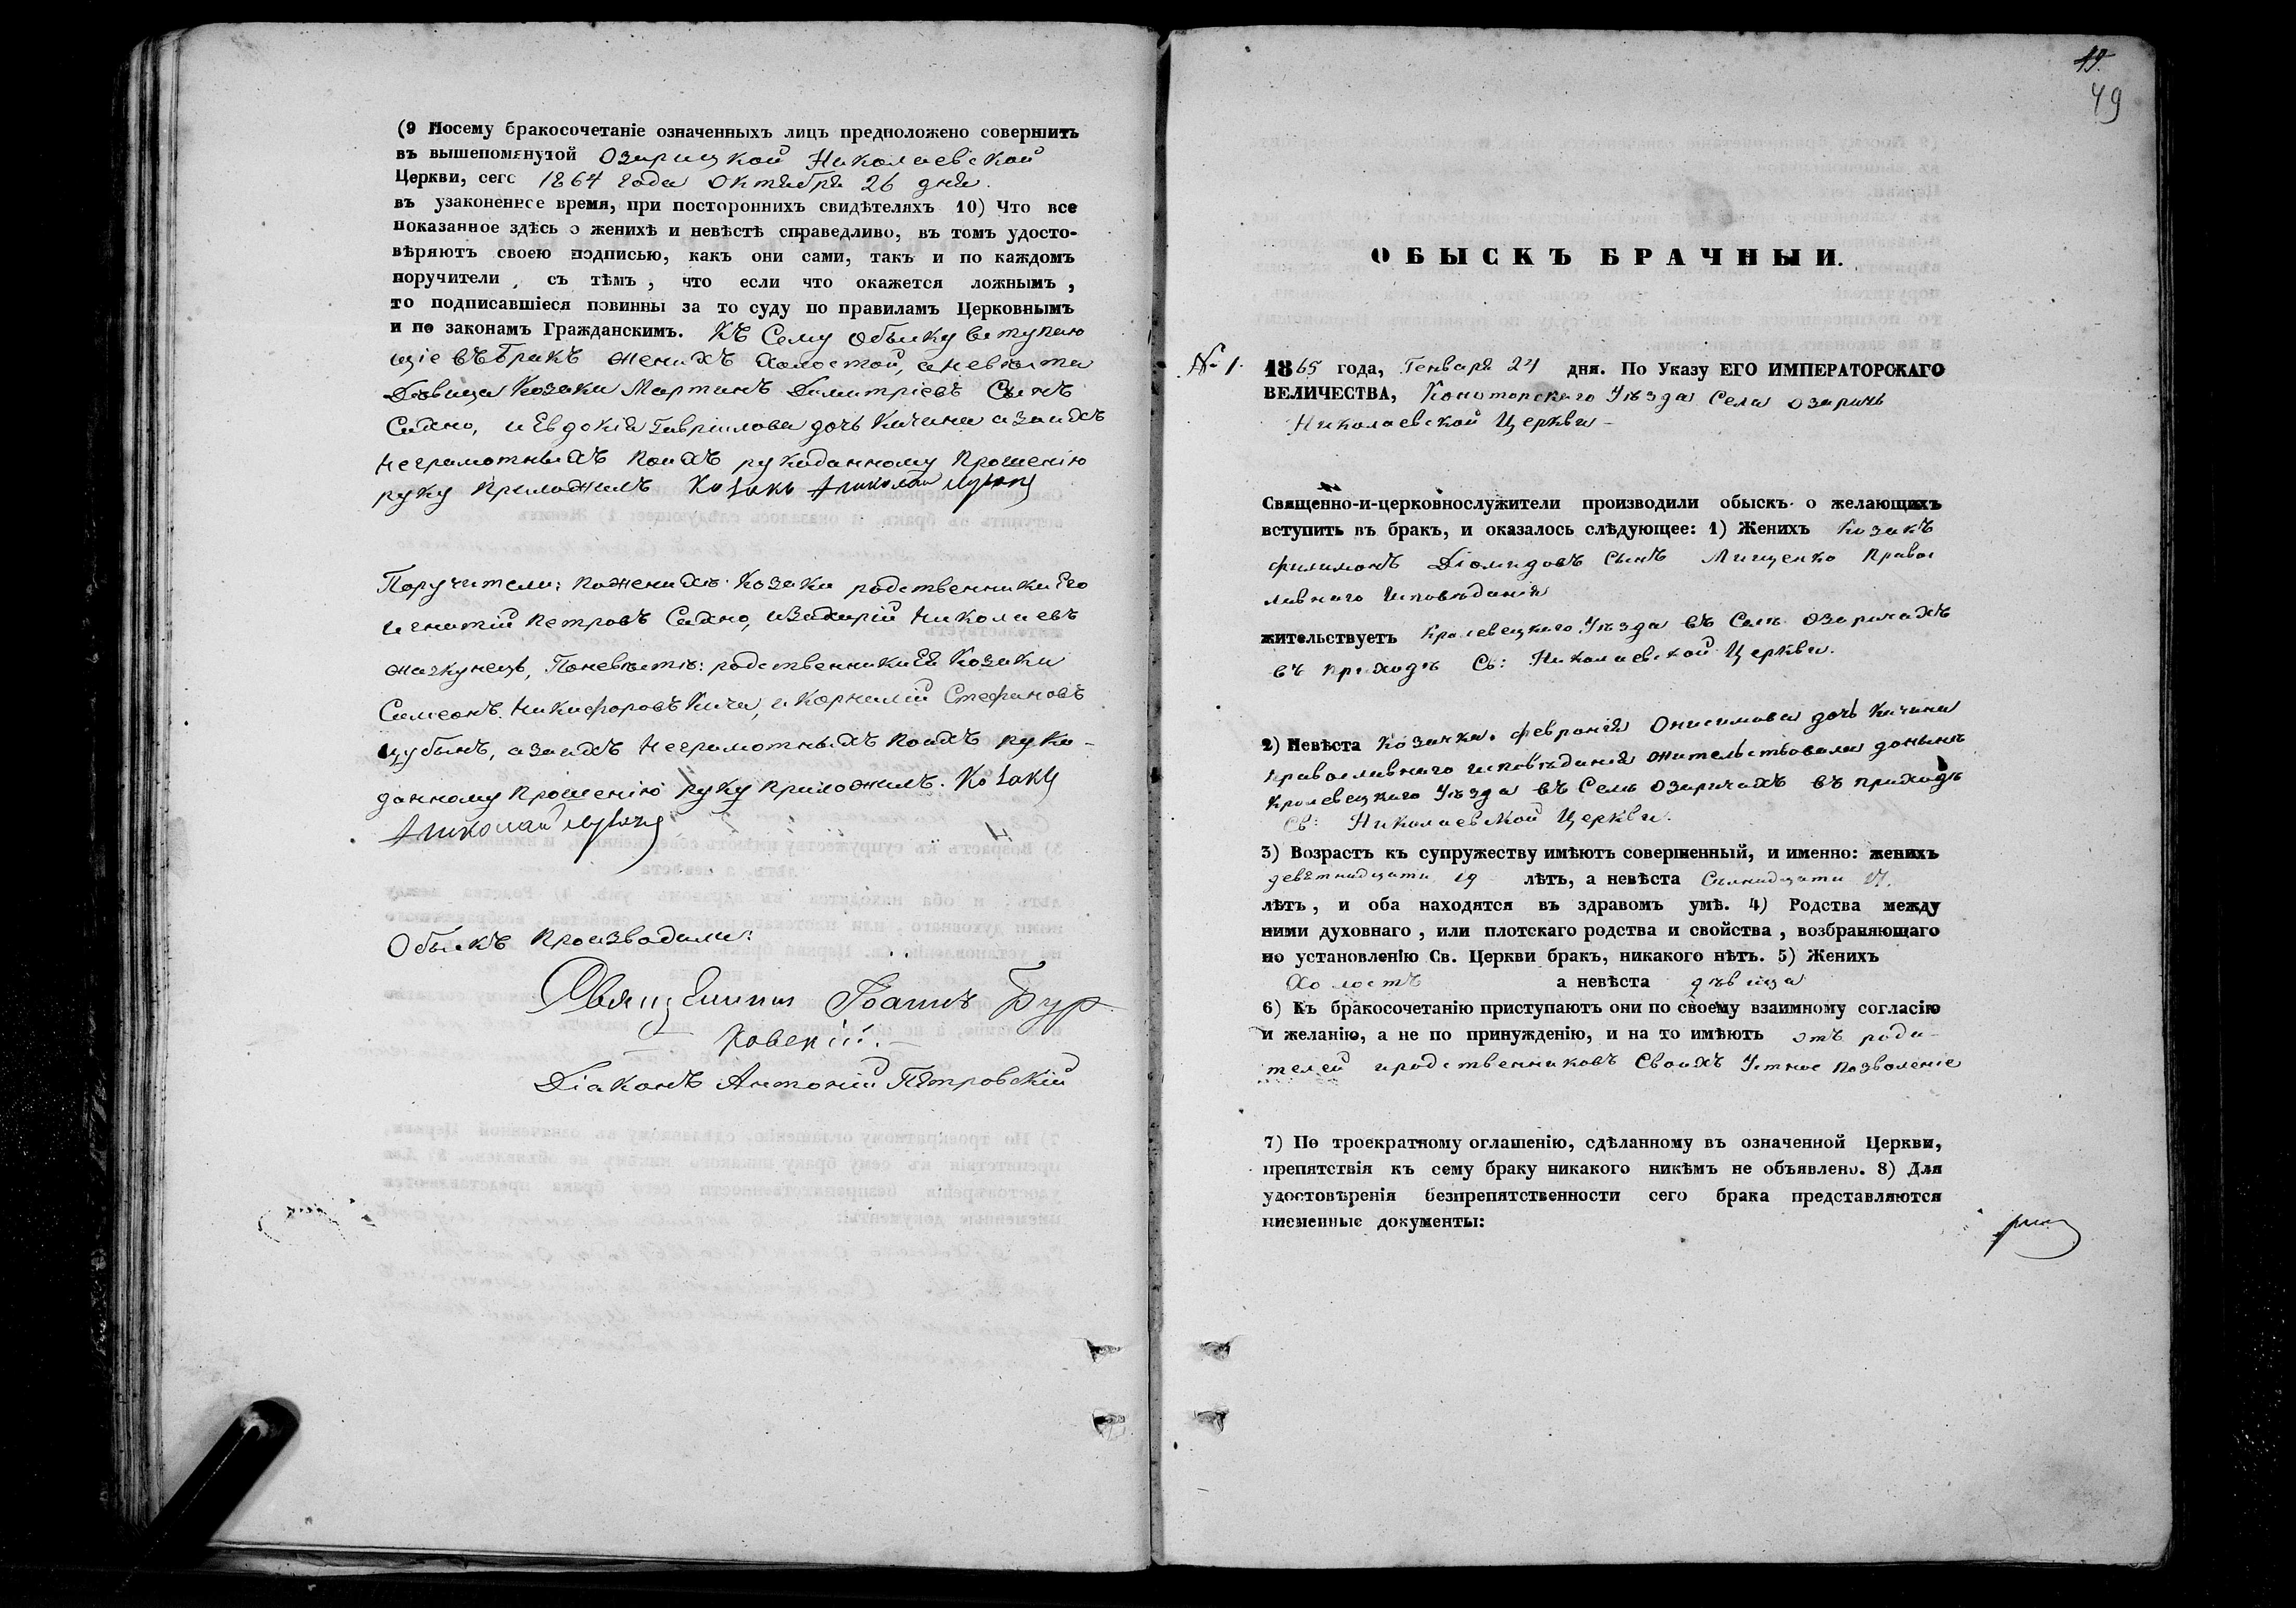 (9 Посему бракосочетаніе означенныхъ лицъ предположено совершить
въ вышепомянутой Озарицкой Николаевской
Церкви, сего 1864 года Октября 26 дня.
въ узаконенное время, при постороннихъ свидѣтеляхъ 10) Что все
показанное здѣсь о женихѣ и невѣстѣ справедливо, въ томъ удосто-
вѣряютъ своею подписью, какъ они сами, такъ и по каждомъ
поручители, съ тѣмъ, что если что окажется ложнымъ,
то подписавшіеся повинны за то суду по правиламъ Церковнымъ
и по законамъ Гражданскимъ. Къ Сему обыску вступаю
щіе въ бракъ женихъ холостой, а невѣста
Дѣвица Козаки Мартинъ Димитріевъ Сынъ
Сахно, и Евдокія Гавріилова дочь Кичина а за ихъ
неграмотныхъ по ихъ рукоданному прошенію
руку приложилъ Козакъ Николай
Поручители: по женихѣ Козаки родственники Его
Игнатій Петровъ Сахно, и Захарій Николаевъ
Поневѣстѣ: родственники Ея Козаки
Симеонъ Никифоровъ Кича, и Корнилій Стефановъ
Цубынъ, а за ихъ неграмотныхъ по ихъ руко-
данному прошенію руку приложилъ. Козакъ
Николай
Обыскъ производили:
Священникъ Іоаннъ Бур
ховецкій.
Діаконъ Антоній Петровскій
49
49
ОБЫСКЪ БРАЧНЫЙ.
№ 1. 1865 года, Генваря 24 дня. По Указу ЕГО ИМПЕРАТОРСКАГО
ВЕЛИЧЕСТВА, Конотопскаго Уѣзда Села Озаричъ
Николаевской Церкви
Священно-и-церковнослужители производили обыскъ о желающихъ
вступить въ бракъ, и оказалось слѣдующее: 1) Женихъ Козакъ
Филимонъ Діомидовъ Сынъ Мищенко Правос
лавнаго Исповѣданія
жительствуетъ Кролевецкаго Уѣзда въ Селѣ Озаричахъ
въ приходѣ Св: Николаевской Церкви.
2) Невѣста Козачка Февронія Онисимова дочь Кичина
Православнаго исповѣданія жительствовала донынѣ
Кролевецкаго Уѣзда въ Селѣ Озаричахъ въ приходѣ
Св: Николаевской Церкви.
3) Возрастъ къ супружеству имѣютъ совершенный, и именно: женихъ
девятнадцати 19 лѣтъ, а невѣста Семнадцати 17.
лѣтъ, и оба находятся въ здравомъ умѣ. 4) Родства между
ними духовнаго, или плотскаго родства и свойства, возбраняющаго
по установленію Св. Церкви бракъ, никакого нѣтъ. 5) Женихъ
Холостъ а невѣста дѣвица
6) Къ бракосочетанію приступаютъ они по своему взаимному согласію
и желанію, а не по принужденію, и на то имѣютъ отъ роди-
телей и родственниковъ Своихъ Устное позволеніе
7) По троекратному оглашенію, сдѣланному въ означенной Церкви,
препятствія къ сему браку никакого никѣмъ не объявлено. 8) Для
удостовѣренія безпрепятственности сего брака представляются
письменные документы: